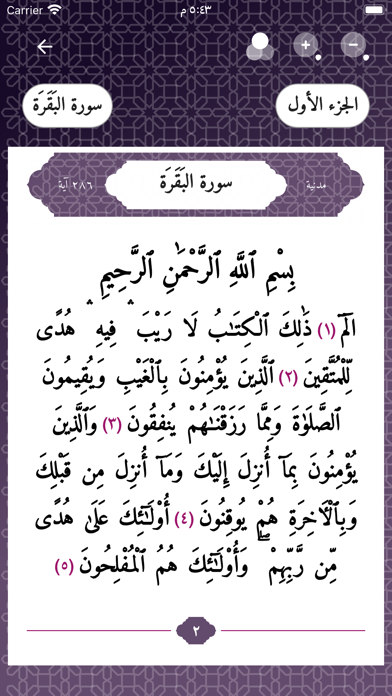 Carrier ٥:٤٣ م
سورة البَقَرَة الجزء الأول
مدنية سورة البَقَرَة ٢٨٦ آية
بِسْمِ ٱللَّهِ ٱلرَّحْمَٰنِ ٱلرَّحِيمِ
الٓمٓ (١) ذَٰلِكَ ٱلْكِتَٰبُ لَا رَيْبَ ۛ فِيهِ ۛ هُدًى
لِّلْمُتَّقِينَ (٢) ٱلَّذِينَ يُؤْمِنُونَ بِٱلْغَيْبِ وَيُقِيمُونَ
ٱلصَّلَوٰةَ وَمِمَّا رَزَقْنَٰهُمْ يُنفِقُونَ (٣) وَٱلَّذِينَ
يُؤْمِنُونَ بِمَآ أُنزِلَ إِلَيْكَ وَمَآ أُنزِلَ مِن قَبْلِكَ
وَبِٱلْءَاخِرَةِ هُمْ يُوقِنُونَ (٤) أُو۟لَٰٓئِكَ عَلَىٰ هُدًى
مِّن رَّبِّهِمْ ۖ وَأُو۟لَٰٓئِكَ هُمُ ٱلْمُفْلِحُونَ (٥)
٢